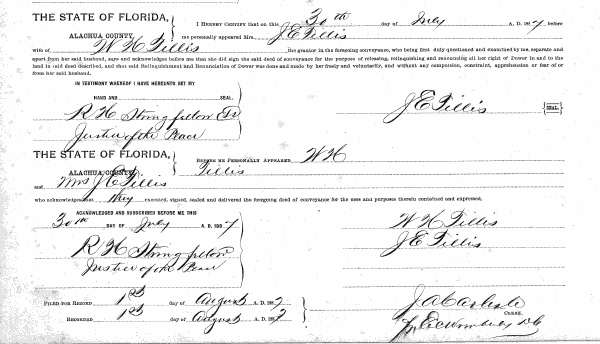 THE STATE OF FLORIDA,
ALACHUA COUNTY.
I HEREBY CERTIFY that on this 30th day of July A. D. 1887 before
me personally appeared Mrs J E Tillis
wife of W H Tillis the grantor in the foregoing conveyance, who being first duly questioned and examined by me, separate and
apart from her said husband, says and acknowledges before me that she did sign the said deed of conveyance for the purpose of releasing, relinquishing and renouncing all her right of Dower in and to the
land in said deed described, and thus said Relinquishment and Renunciation of Dower was done and made by her freely and voluntarily, and without any compulsion, constraint, apprehension or fear of or
from her said husband.
IN TESTIMONY WHEREOF I HAVE HEREUNTO SET MY
HAND AND SEAL.
R H Stringfellow
Justice of the Peace
J E Tillis SEAL.
THE STATE OF FLORIDA,
ALACHUA COUNTY.
BEFORE ME PERSONALLY APPEARED W H
Tillis
and Mrs J E Tillis
who acknowledges that they executed, signed, sealed and delivered the foregoing deed of conveyance for the uses and purposes therein contained and expressed.
ACKNOWLEDGED AND SUBSCRIBED BEFORE ME THIS
30th DAY OF July A. D. 1887
R H Stringfellow
Justice of the Peace
W H Tillis
J E Tillis
FILED FOR RECORD 1st day of August A. D. 1887
RECORDED 1st day of August A. D. 1887
J A Carlisle
CLERK.